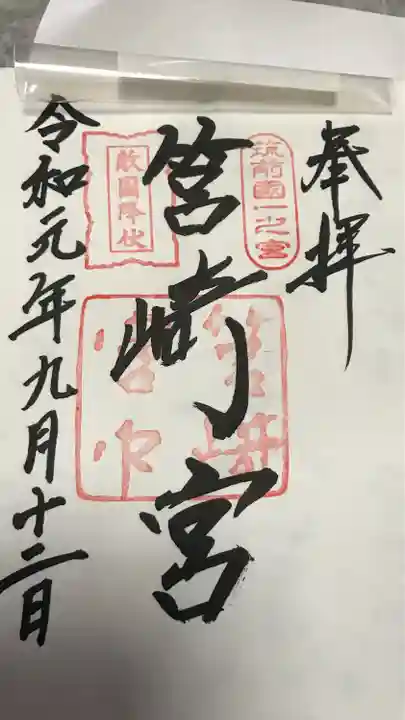 奉拝
筑前國一之宮
筥崎宮
筥崎宮印
敵国降伏
令和元年九月十二日